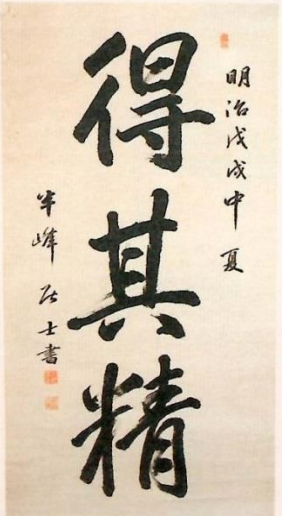 明治戊戌中夏
得其精
半峰居士書